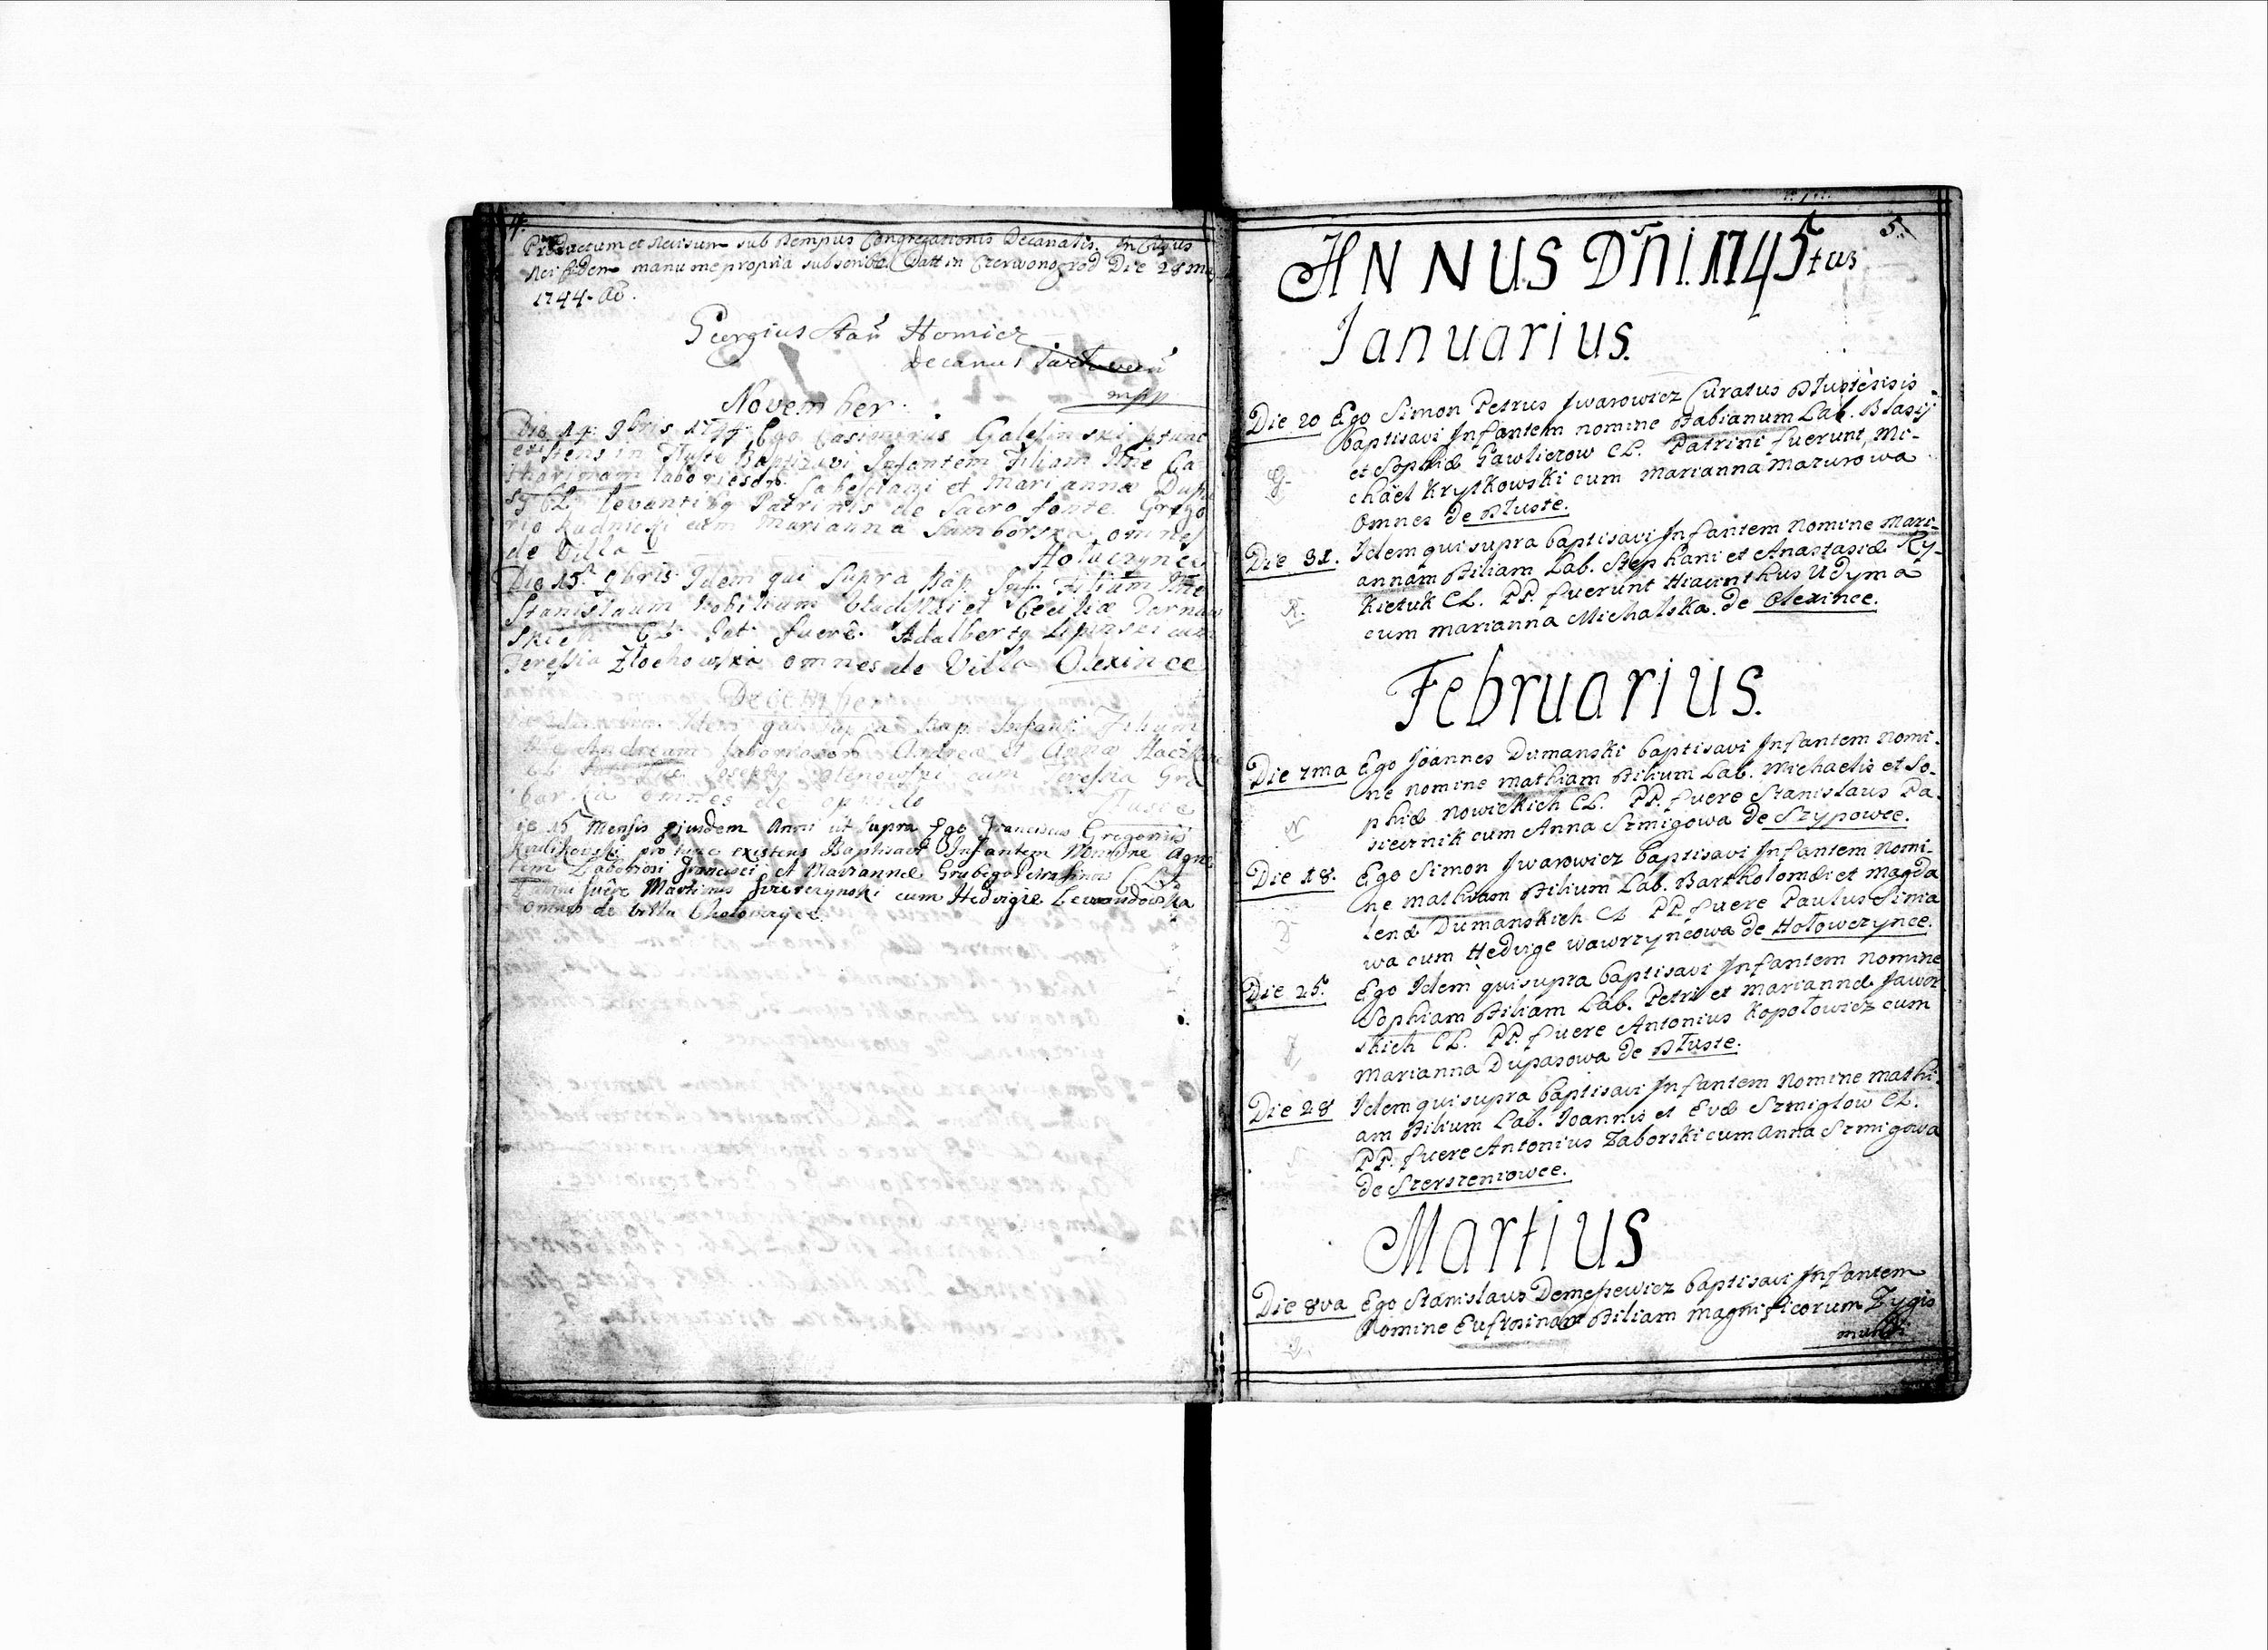 4.
Productum et Revisum sub Tempus Congregationis Decanalis. In Cujus
Rei fidem manu me propria subscribo. Datt in Czerwonogrod Die 28 ma
1744. Ao.
Georgius Stan Homicz
Decanus
mpp
November.
Die 14. 9bris 1744. Ego Casimirus Galesinski ptunc
existens in Tłuste Baptizavi Infantem Filiam Nne Ca
tharinam laboriosor. Sabestiani et Marianna Dupa
CL. levantibq Patrinis de Sacro fonte Grego
rio Rudnicki cum Marianna Samborska omnes
de Villa Hołuczynce
Die 15. 9bris Idem qui Supra Bap. Inf. Filium Nne
Stanislaum Nobilium et Ceciliæ Tarnaw
skich CL. Pat. fuerê. Adalbertq Lipinski cum
Teressia Złochowska omnes de Villa Olexince
December
Idem qui Supra Bap. Infant. Filium
Nne Andream laboriosor. Andreæ et Annæ
CL. Josephq cum Teressia Gra
barska omnes de oppido Tłuste
ie 15 Mensis ejusdem Anni ut supra Ego Franciscus Gregorius
Kulikowski pro tunc existens Baptisavi Infantem Nomine Agne
tem Laboriosi Francisci et Mariannæ CL.
Patrini fuêre Martinus cum Hedvigie Lewandowska
omnes de Villa
5.
ANNUS DÑI. 1745tus
Ianuarius.
Die 20 Ego Simon Petrus Iwarowicz Curatus Tłustèsis
baptisavi Infantem nomine Fabianum Lab. Blasij
et Sophiæ Gawliczow CL. Patrini fuerunt, Mi-
chäel Krytkowski cum Marianna Mazurowa
G.
Omnes de Tłuste.
Die 31. Idem qui supra baptisavi Infantem Nomine Mari-
annam Filiam Lab. Stephani et Anastasiæ Ry-
R.
kietuk CL. PP. fuerunt Hiacinthus Udyma
cum Marianna Michalska. de Olexince.
Februarius.
Die 7ma Ego Joannes Dumanski baptisavi Infantem Nomi-
ne nomine Mathiam Filium Lab. Michaelis et So-
phiæ Nowickich CL. PP. fuere Stanislaus Pa-
N
siecznik cum Anna Szmigowa de Szypowce.
Die 18. Ego Simon Iwarowicz baptisavi Infantem Nomi-
ne Mathiam Filium Lab. Bartholomæi et Magda
D
lenæ Dumanskich CL PP. fuere Paulus Sima
wa cum Hedvige Wawrzyncowa de Hołowczynce.
Die 25. Ego Idem qui supra baptisavi Infantem Nomine
Sophiam Filiam Lab. Petri et Mariannæ Jawor
J
skich CL. PP. fuere Antonius Kopołowicz cum
Marianna Dupasowa de Tłuste.
Die 28 Idem qui supra baptisavi Infantem Nomine Mathi-
am Filium Lab. Joannis et Evæ Szmiglow CL.
PP. fuere Antonius Zaborski cum Anna Szmigowa
de Szerszeniowce.
Martius
Die 8va Ego Stanislaus Dempsewicz baptisavi Infantem
Nomine Eufrosinam Filiam Magnificorum Zygis
mundi